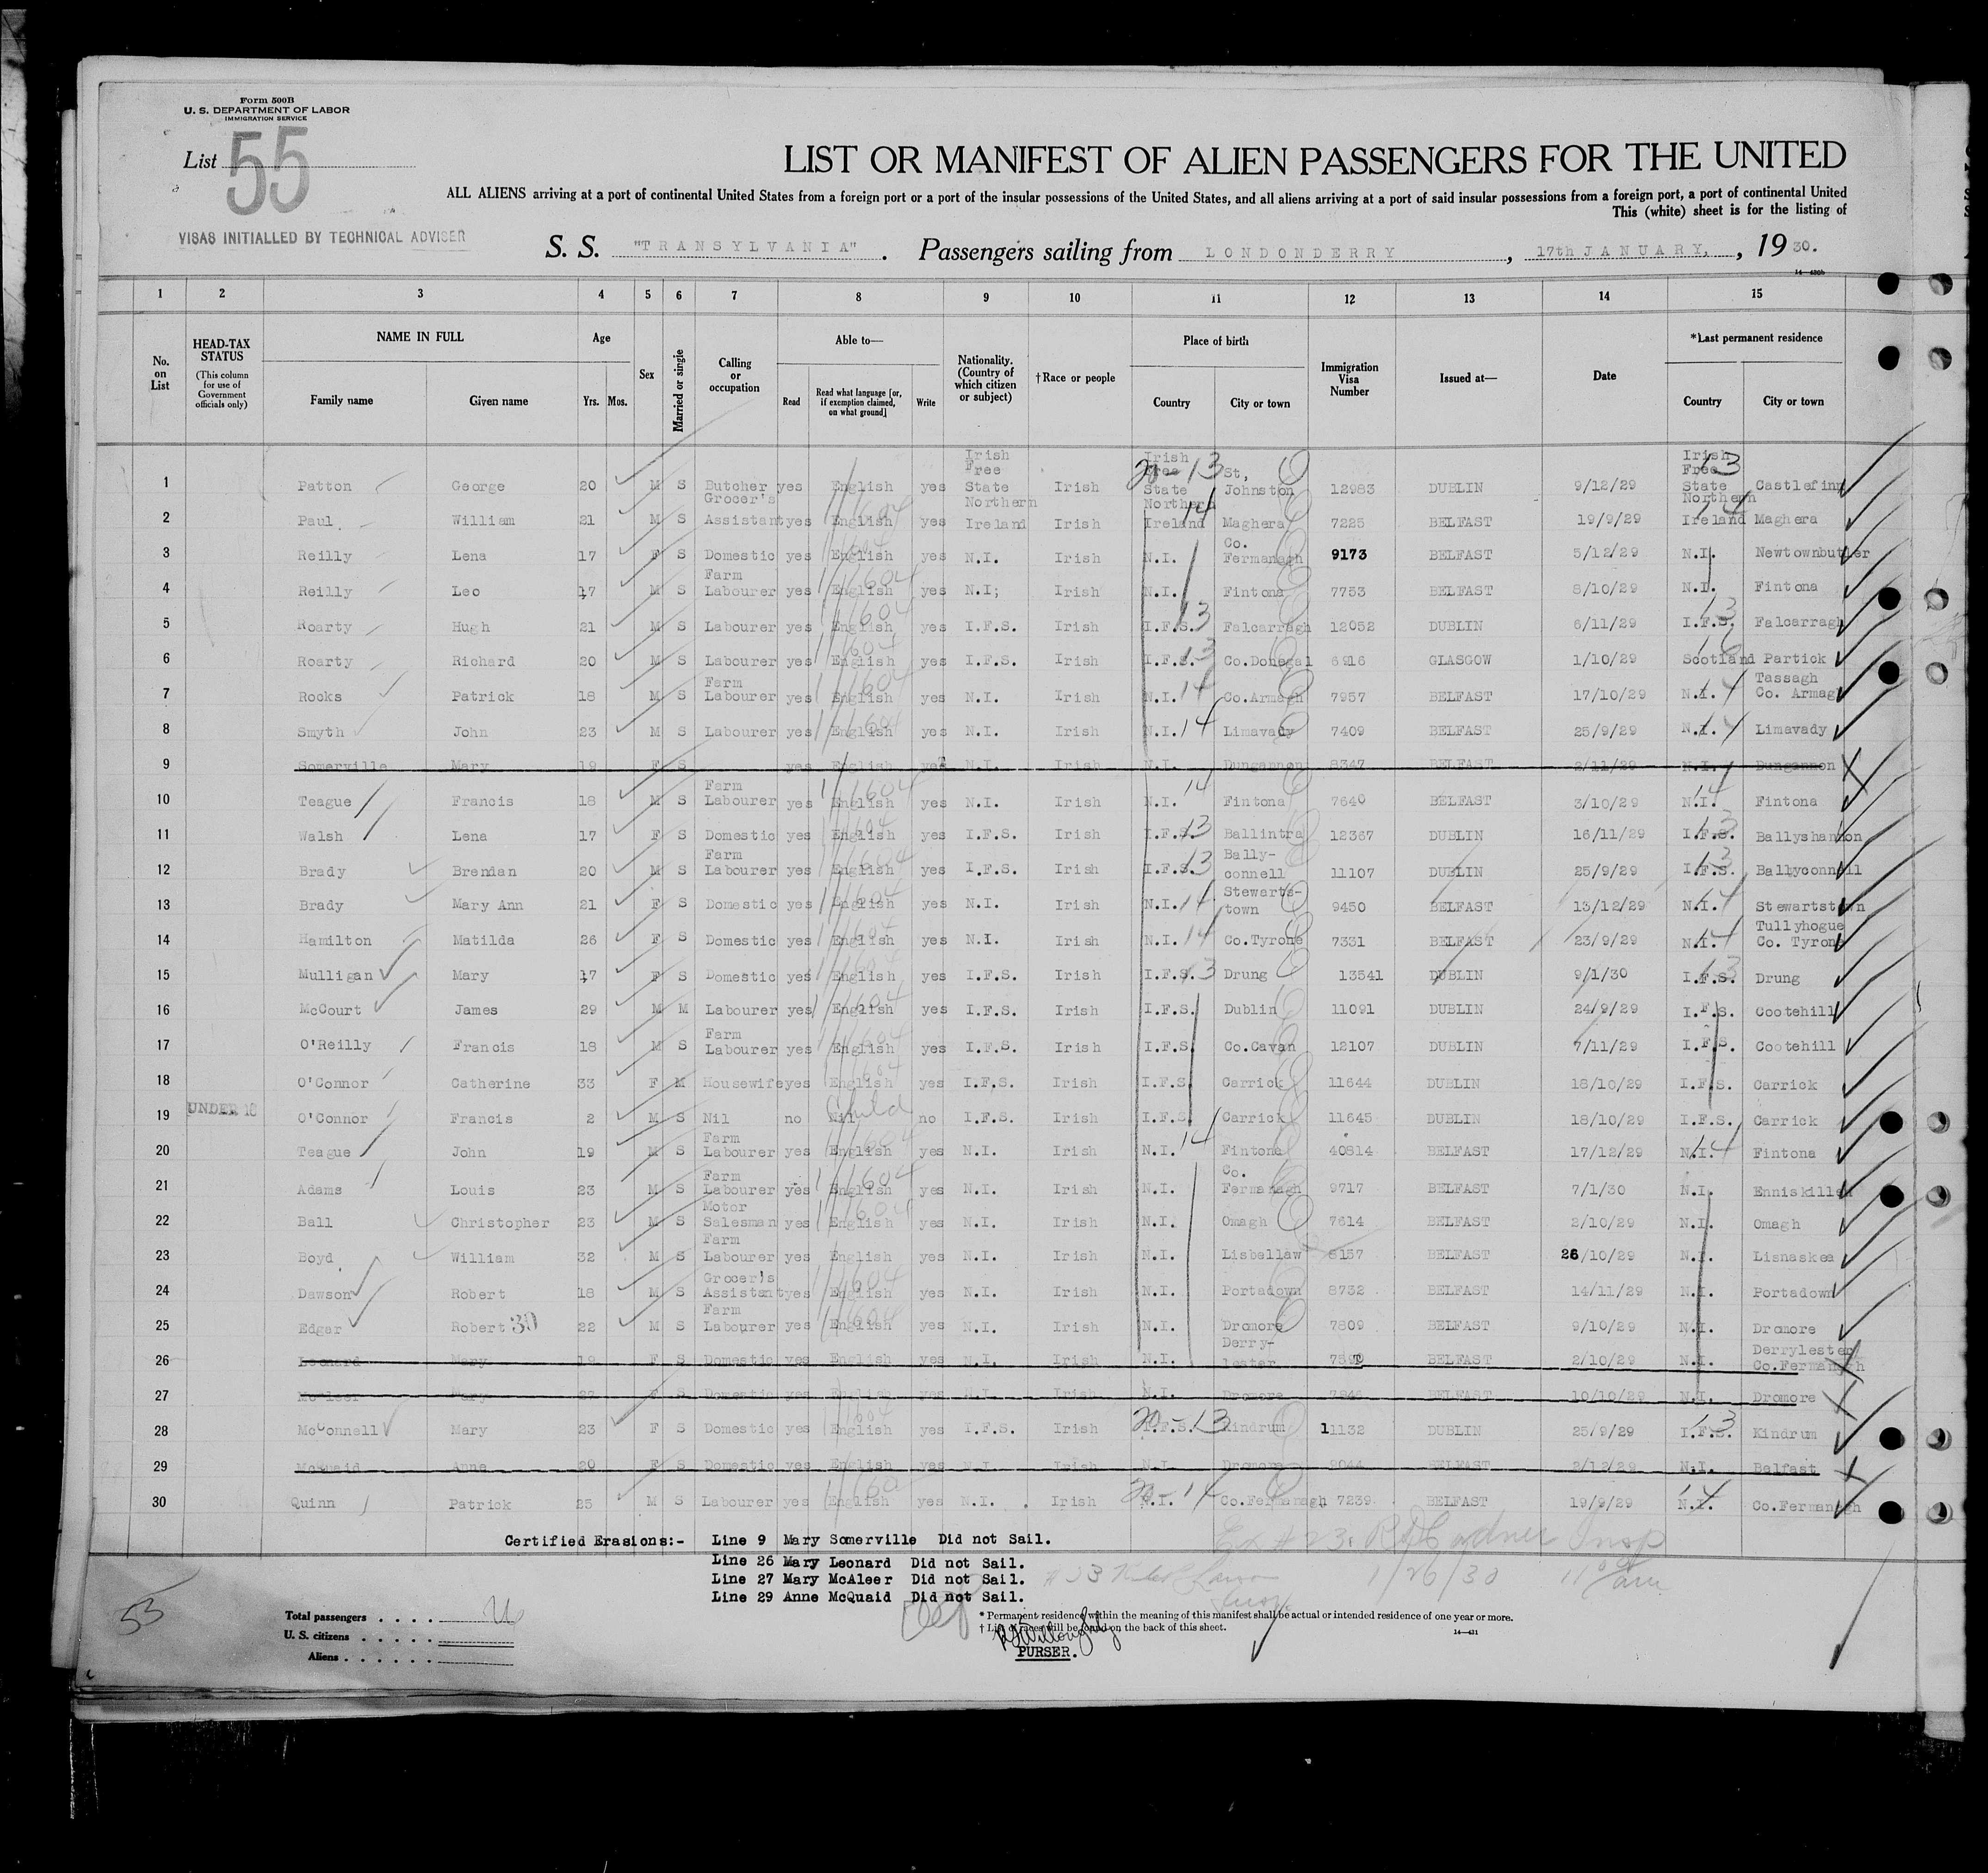 Form 500B
U. S. DEPARTMENT OF LABOR
IMMIGRATION SERVICE
List 55
LIST OR MANIFEST OF ALIEN PASSENGERS FOR THE UNITED
ALL ALIENS arriving at a port of continental United States from a foreign port or a port of the insular possessions of the United States, and all aliens arriving at a port of said insular possessions from a foreign port, a port of continental United
This (white) sheet is for the listing of
VISAS INITIALLED BY TECHNICAL ADVISER
S. S. "TRANSYLVANIA". Passengers sailing from LONDONDERRY, 17th JANUARY, , 19 30.
14—430b
1 2 3 4 5 6 7 8 9 10 11 12 13 14 15
No. on List
HEAD-TAX STATUS
(This column for use of Government officials only)
NAME IN FULL
Family name Given name
Age
Yrs. Mos.
Sex
Married or single
Calling or occupation
Able to—
Read
Read what language [or, if exemption claimed, on what ground]
Write
Nationality. (Country of which citizen or subject)
†Race or people
Place of birth
Country City or town
Immigration Visa Number
Issued at—
Date
*Last permanent residence
Country City or town
1 Patton George 20 M S Butcher yes English yes Irish Free State Irish Irish Free State 20-13 St, Johnston 12983 DUBLIN 9/12/29 Irish Free State 13 Castlefinn
2 Paul William 21 M S Grocer's Assistant yes 1/1604 English yes Northern Ireland Irish Northern Ireland 14 Maghera 7225 BELFAST 19/9/29 Northern Ireland 14 Maghera
3 Reilly Lena 17 F S Domestic yes English yes N.I. Irish N.I. Co. Fermanagh 9173 BELFAST 5/12/29 N.I. Newtownbutler
4 Reilly Leo 17 M S Farm Labourer yes 1/1604 English yes N.I; Irish N.I. Fintona 7753 BELFAST 8/10/29 N.I. Fintona
5 Roarty Hugh 21 M S Labourer yes 1/1604 English yes I.F.S. Irish I.F.S. 13 Falcarragh 12052 DUBLIN 6/11/29 I.F.S. 13 Falcarragh
6 Roarty Richard 20 M S Labourer yes 1/1604 English yes I.F.S. Irish I.F.S. 13 Co.Donegal 6916 GLASGOW 1/10/29 Scotland 16 Partick
7 Rooks Patrick 18 M S Farm Labourer yes 1/1604 English yes N.I. Irish N.I. 14 Co.Armagh 7957 BELFAST 17/10/29 N.I. 14 Tassagh Co. Armagh
8 Smyth John 23 M S Labourer yes 1/1604 English yes N.I. Irish N.I. 14 Limavady 7409 BELFAST 25/9/29 N.I. 14 Limavady
9 Somerville Mary 19 F S yes English yes N.I. Irish N.I. Dungannon 8347 BELFAST 2/11/29 N.I. Dungannon
10 Teague Francis 18 M S Farm Labourer yes 1/1604 English yes N.I. Irish N.I. 14 Fintona 7640 BELFAST 3/10/29 N.I. 14 Fintona
11 Walsh Lena 17 F S Domestic yes 1/1604 English yes I.F.S. Irish I.F.S. 13 Ballintra 12367 DUBLIN 16/11/29 I.F.S. 13 Ballyshannon
12 Brady Brendan 20 M S Farm Labourer yes 1/1604 English yes I.F.S. Irish I.F.S. 13 Bally-connell 11107 DUBLIN 25/9/29 I.F.S. 13 Ballyconnell
13 Brady Mary Ann 21 F S Domestic yes 1/1604 English yes N.I. Irish N.I. 14 Stewarts-town 9450 BELFAST 13/12/29 N.I. 14 Stewartstown
14 Hamilton Matilda 26 F S Domestic yes 1/1604 English yes N.I. Irish N.I. 14 Co.Tyrone 7331 BELFAST 23/9/29 N.I. 14 Tullyhogue Co. Tyrone
15 Mulligan Mary 17 F S Domestic yes 1/1604 English yes I.F.S. Irish I.F.S. 13 Drung 13541 DUBLIN 9/1/30 I.F.S. 13 Drung
16 McCourt James 29 M M Labourer yes 1/1604 English yes I.F.S. Irish I.F.S. Dublin 11091 DUBLIN 24/9/29 I.F.S. Cootehill
17 O'Reilly Francis 18 M S Farm Labourer yes 1/1604 English yes I.F.S. Irish I.F.S Co.Cavan 12107 DUBLIN 7/11/29 I.F.S. Cootehill
18 O'Connor Catherine 33 F M Housewife yes 1/1604 English yes I.F.S. Irish I.F.S. Carrick 11644 DUBLIN 18/10/29 I.F.S. Carrick
19 UNDER 18 O'Connor Francis 2 M S Nil no Nil Child no I.F.S. Irish I.F.S. Carrick 11645 DUBLIN 18/10/29 I.F.S. Carrick
20 Teague John 19 M S Farm Labourer yes 1/1604 English yes N.I. Irish N.I. 14 Fintona 40814 BELFAST 17/12/29 N.I. 14 Fintona
21 Adams Louis 23 M S Farm Labourer yes 1/1604 English yes N.I. Irish N.I. Co. Fermanagh 9717 BELFAST 7/1/30 N.I. Enniskillen
22 Ball Christopher 23 M S Motor Salesman yes 1/1604 English yes N.I. Irish N.I. Omagh 7614 BELFAST 2/10/29 N.I. Omagh
23 Boyd William 32 M S Farm Labourer yes English yes N.I. Irish N.I. Lisbellaw 8157 BELFAST 26/10/29 N.I. Lisnaskea
24 Dawson Robert 18 M S Grocer's Assistant yes 1/1604 English yes N.I. Irish N.I. Portadown 8732 BELFAST 14/11/29 N.I. Portadown
25 Edgar Robert 30 22 M S Farm Labourer yes 1/1604 English yes N.I. Irish N.I. Dromore 7809 BELFAST 9/10/29 N.I. Dromore
26 Leonard Mary 19 F S Domestic yes English yes N.I. Irish N.I. Derry-lester BELFAST 2/10/29 N.I. Derrylester Co.Fermanagh
27 McAleer Mary 27 F S Domestic yes English yes N.I. Irish N.I. Dromore 7846 BELFAST 10/10/29 N.I. Dromore
28 McConnell Mary 23 F S Domestic yes 1/1604 English yes I.F.S. Irish I.F.S. 20-13 Kindrum 11132 DUBLIN 25/9/29 I.F.S. 13 Kindrum
29 McQuaid Anne 20 F S Domestic yes English yes N.I. Irish N.I. Dromore 9044 BELFAST 2/12/29 N.I. Belfast
30 Quinn Patrick 25 M S Labourer yes English yes N.I. Irish N.I. 20-14 Co.Fermanagh 7239 BELFAST 19/9/29 N.I. 14 Co.Fermanagh
Certified Erasions:- Line 9 Mary Somerville Did not Sail.
Line 26 Mary Leonard Did not Sail.
Line 27 Mary McAleer Did not Sail.
Line 29 Anne McQuaid Did not Sail.
Insp
1/26/30 11 am
53
Total passengers
U. S. citizens
Aliens
* Permanent residence within the meaning of this manifest shall be actual or intended residence of one year or more.
† List of races will be found on the back of this sheet.
14—431
PURSER.